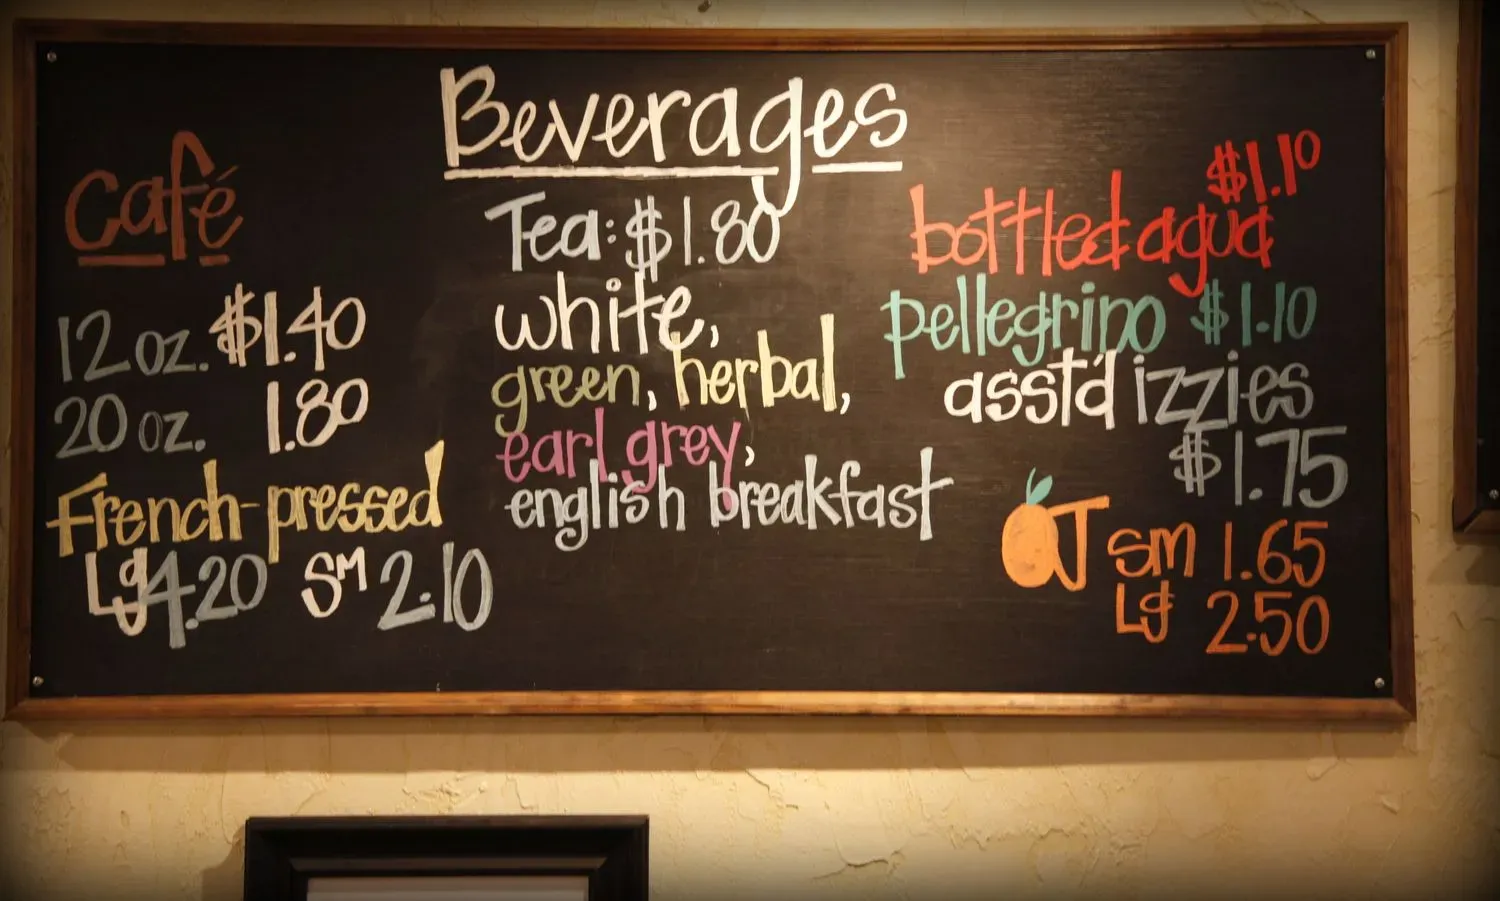 Beverages
café
12 oz. $1.40
20 oz. 1.80
French-pressed
Lg 4.20 SM 2.10
Tea: $1.80
white,
green, herbal,
earl grey,
english breakfast
$1.10
bottled agua
pellegrino $1.10
asst'd izzies
$1.75
OJ sm 1.65
Lg 2.50